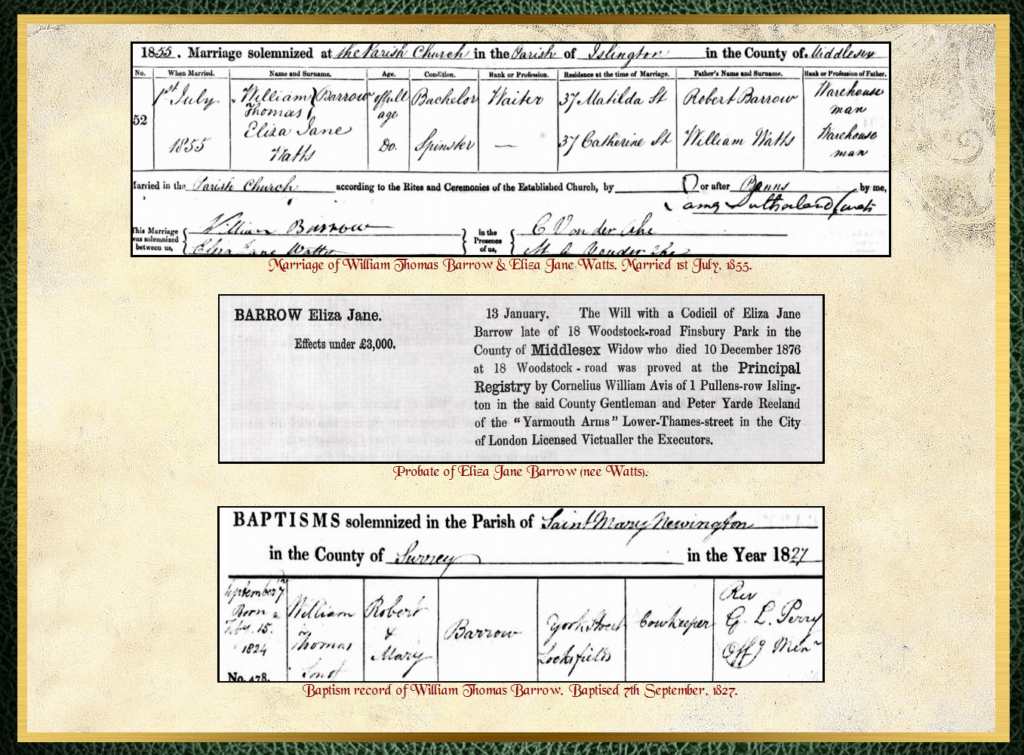 1855. Marriage solemnized at the Parish Church in the Parish of Islington in the County of Middlesex
No. When Married. Name and Surname. Age. Condition. Rank or Profession. Residence at the time of Marriage. Father's Name and Surname. Rank or Profession of Father.
52 1st July 1855 William Thomas Barrow of full age Bachelor Waiter 37 Matilda St Robert Barrow Warehouse man
Eliza Jane Watts Do. Spinster — 37 Catherine St William Watts Warehouse man
Married in the Parish Church according to the Rites and Ceremonies of the Established Church, by or after Banns by me,
James Sutherland
This Marriage was solemnized between us, William Barrow in the Presence of us, C Von der Ahe
Eliza Jane Watts
Marriage of William Thomas Barrow & Eliza Jane Watts. Married 1st July, 1855.
BARROW Eliza Jane.
Effects under £3,000.
13 January. The Will with a Codicil of Eliza Jane
Barrow late of 18 Woodstock-road Finsbury Park in the
County of Middlesex Widow who died 10 December 1876
at 18 Woodstock-road was proved at the Principal
Registry by Cornelius William Avis of 1 Pullens-row Isling-
ton in the said County Gentleman and Peter Yarde Reeland
of the "Yarmouth Arms" Lower-Thames-street in the City
of London Licensed Victualler the Executors.
Probate of Eliza Jane Barrow (nee Watts).
BAPTISMS solemnized in the Parish of Saint Mary Newington
in the County of Surrey in the Year 1827
September 7 Born Feby. 15. 1824 No. 478. William Thomas Son of Robert & Mary Barrow York Street Locksfields Cowkeeper Rev G. L. Perry Offg Minr
Baptism record of William Thomas Barrow. Baptised 7th September, 1827.